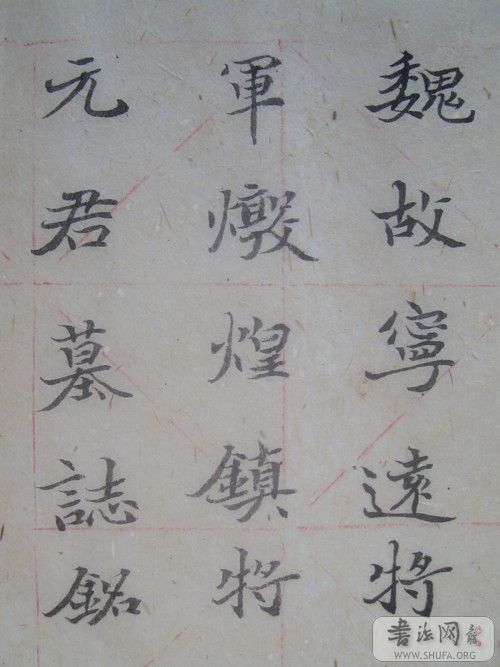 魏故寧遠将
軍燉煌鎮将
元君墓誌銘
书法网
WWW.SHUFA.ORG